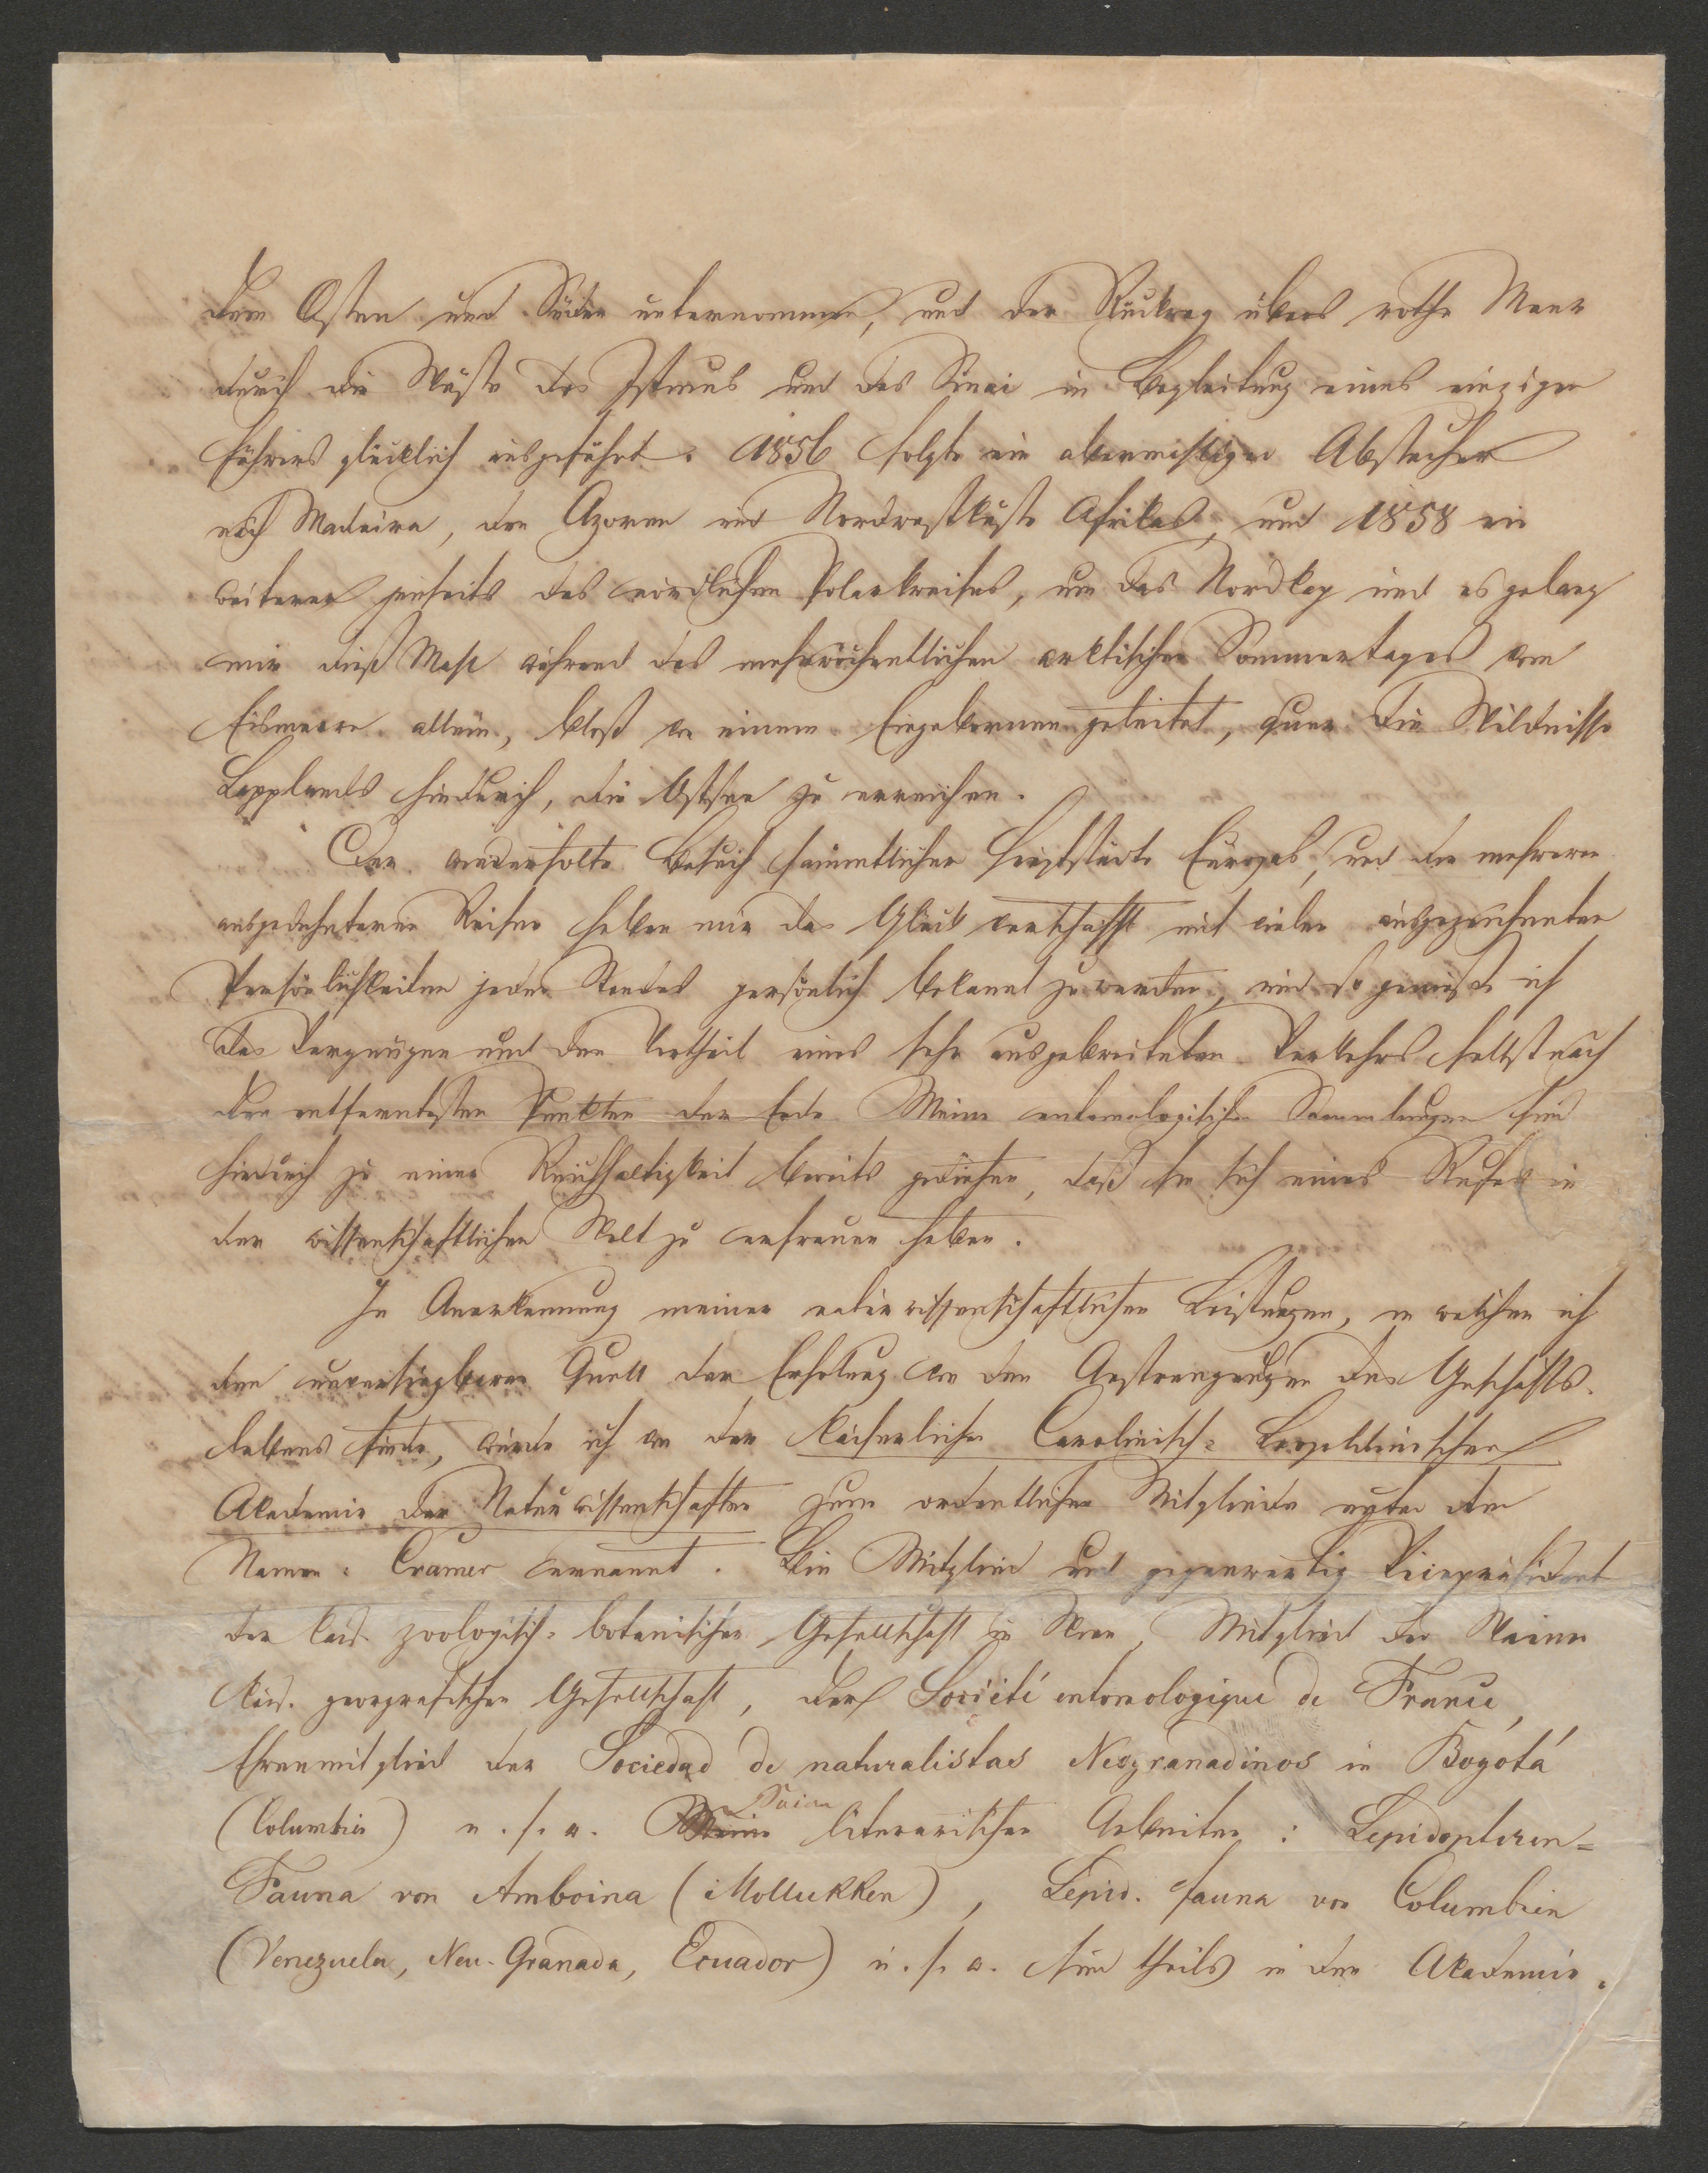 dem Osten und Süden unternommen, und der Rückweg übers rothe Meer
durch die Wüste des Istmus und des Sinai in Begleitung eines einzigen
Führers glücklich ausgeführt. 1856 folgte ein abermaliger Abstecher
nach Madeira, den Azoren und Nordwestküste Afrikas, und 1858 ein
weiterer jenseits des nördlichen Polarkreises, um das Nordkap und es gelang
mir dieß Mahl während des mehrwöchentlichen arktischen Sommertages vom
Eismeere allein, bloß von einem Eingebornen geleitet, quer die Wildnisse
Lapplands hindurch, die Ostsee zu erreichen.
Der wiederholte Besuch sämmtlicher Hauptstädte Europas, und die mehreren
ausgedehnteren Reisen haben mir das Glück verschafft mit vielen ausgezeichneten
Persönlichkeiten jeden Standes persönlich bekannt zu werden, und so genieße ich
das Vergnügen und den Vortheil eines sehr ausgebreiteten Verkehrs selbst nach
den entferntesten Punkten der Erde. Meine entomologischen Sammlungen sind
hiedurch zu einer Reichhaltigkeit bereits gediehen, daß sie sich eines Rufes in
der wissenschaftlichen Welt zu erfreuen haben.
In Anerkennung meiner naturwissenschaftlichen Leistungen, in welchen ich
den unversiegbaren Quell der Erholung von den Anstrengungen des Geschäfts-
lebens finde, wurde ich von der kaiserlichen Carolinisch-Leopoldinischen
Akademie der Naturwissenschaften zum ordentlichen Mitgliede unter dem
Namen: Cramer ernannt. Bin Mitglied und gegenwärtig Vicepräsident
der kais. zoologisch-botanischen Gesellschaft in Wien, Mitglied der Wiener
kais. geografischen Gesellschaft, der Société entomologique de France,
Ehrenmitglied der Sociedad de naturalistas Neogranadinos in Bogotá
(Columbien) u. s. w. Meine literarischen Arbeiten: Lepidopteren=
Fauna von Amboina (Mollukken), Lepid. fauna von Columbien
(Venezuela, Neu-Granada, Ecuador) u. s. w. sind theils in den Akademie-